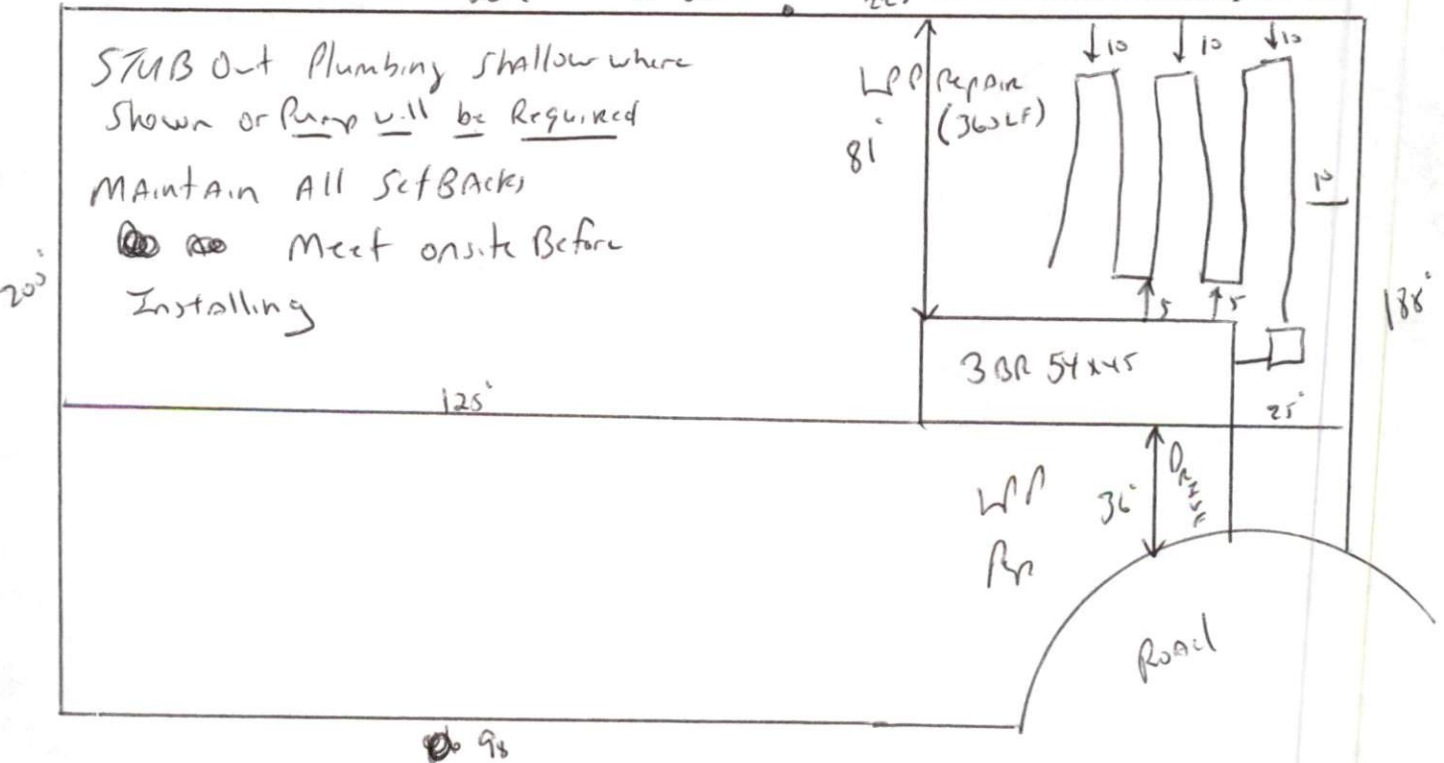 STUB Out Plumbing shallow where
shown or Pump will be Required
MAintAin All SetBAcks
Meet onsite Before
Installing
200'
81'
LPP Repair
(360 LF)
10
10
10
10
188'
5
5
3 BR 54x45
125'
25'
36'
Road
98